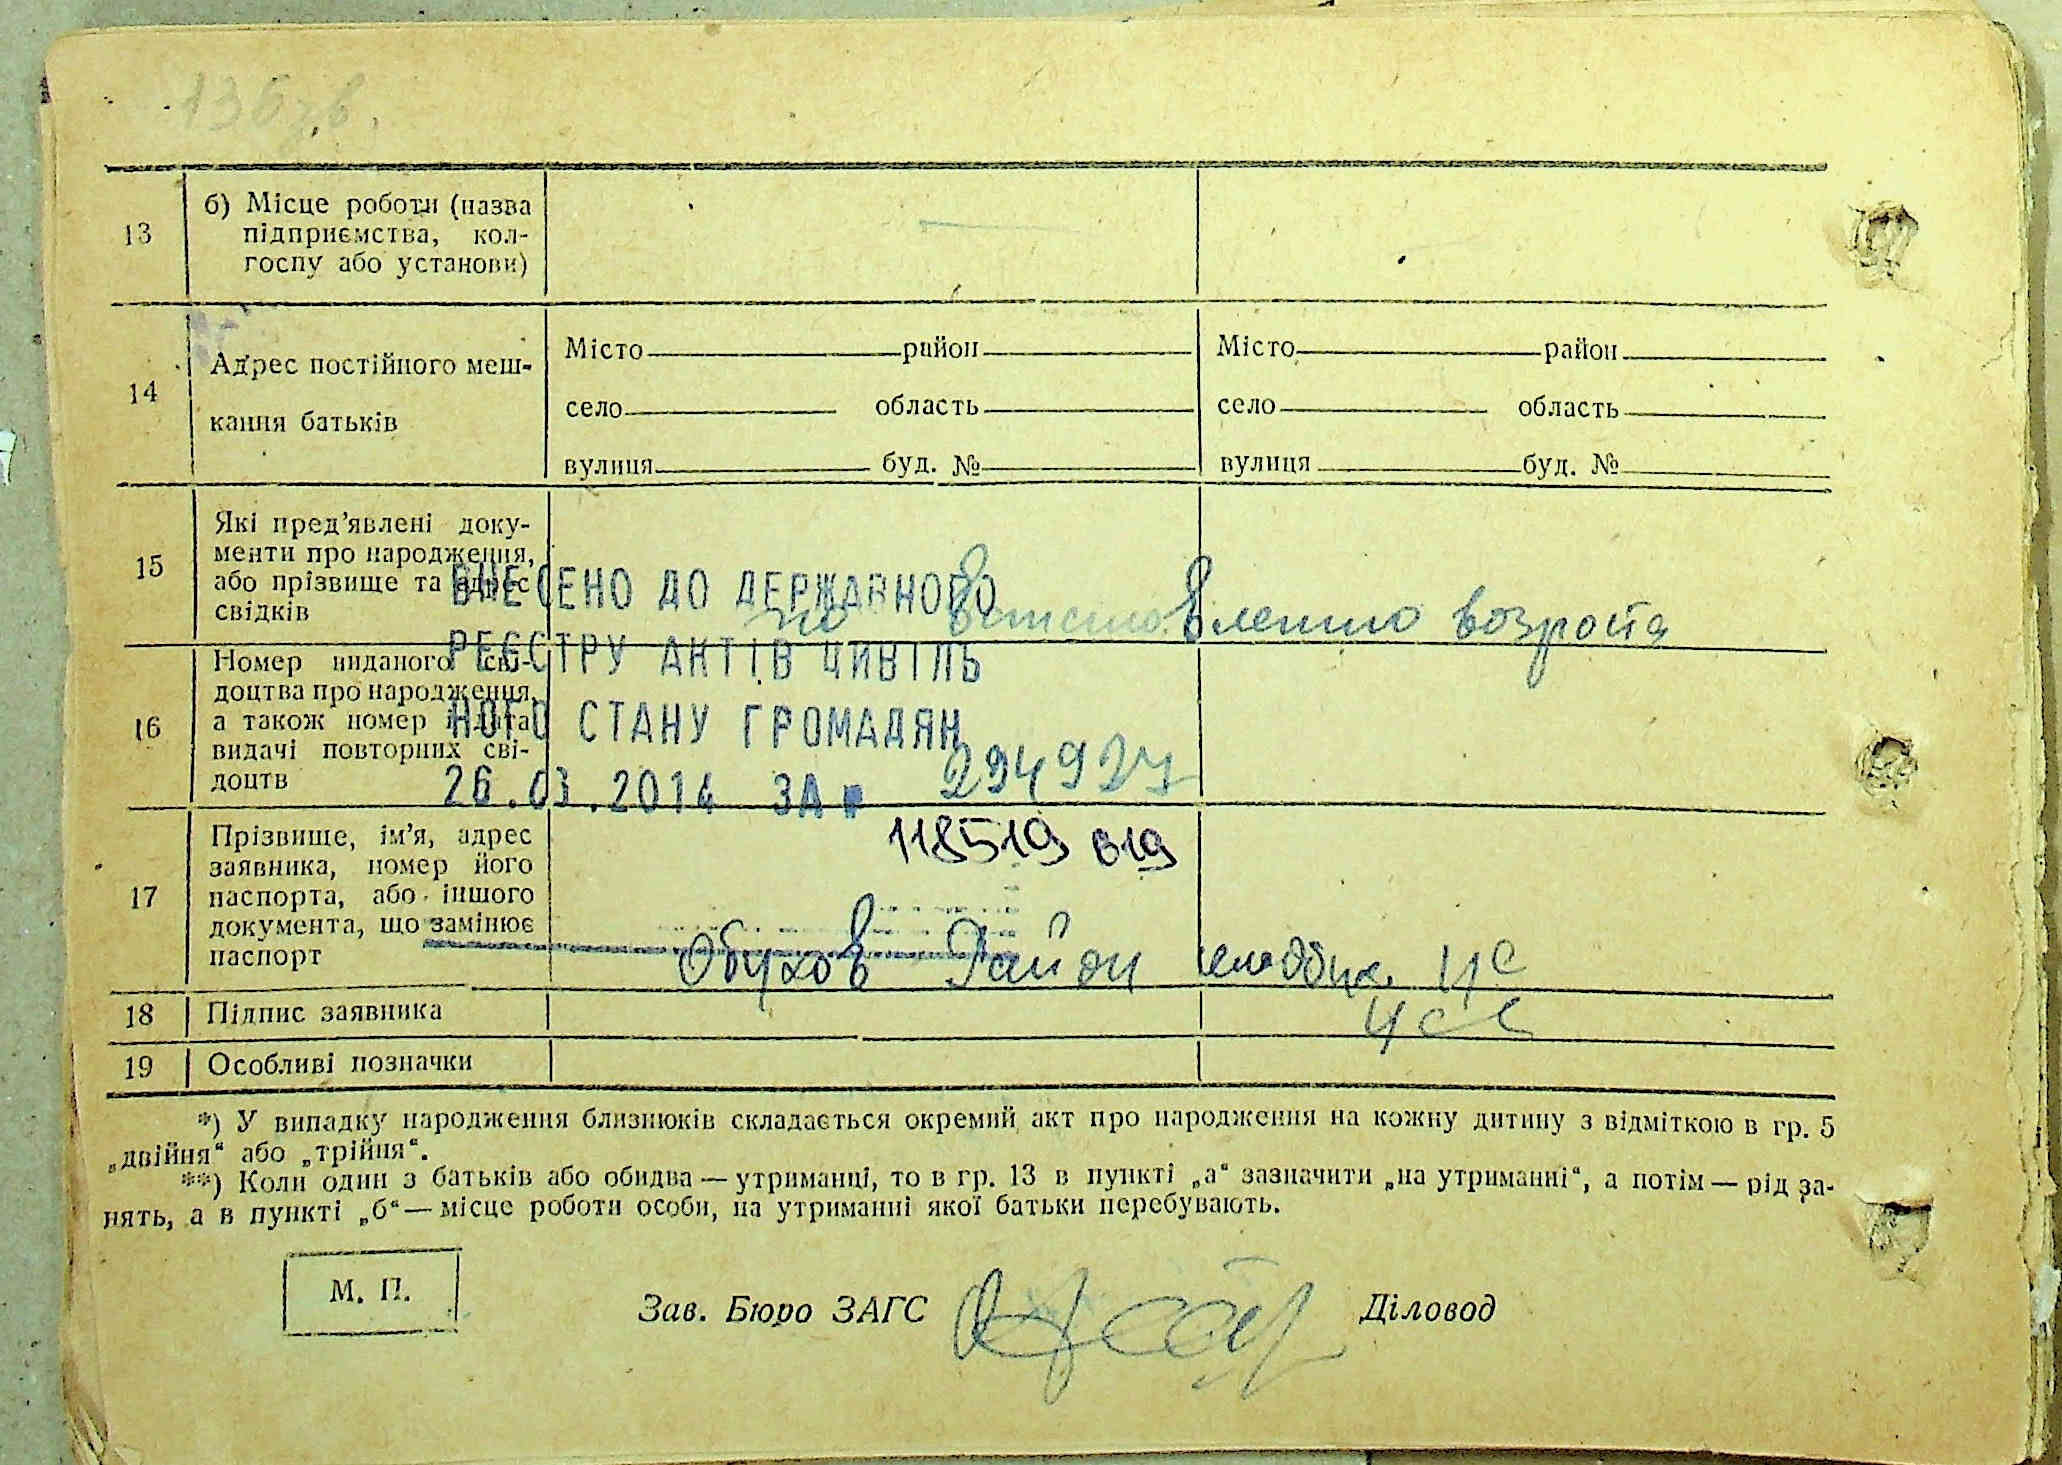 13
б) Місце роботи (назва
підприємства, кол-
госпу або установи)
14
Адрес постійного меш-
кання батьків
Місто район
село область
вулиця буд. №
Місто район
село область
вулиця буд. №
15
Які пред’явлені доку-
менти про народження,
або прізвище та адрес
свідків
возраста
ВНЕСЕНО ДО ДЕРЖАВНОГО
РЕЄСТРУ АКТІВ ЦИВІЛЬ
НОГО СТАНУ ГРОМАДЯН
26.03.2014 ЗА №
118519 819
16
Номер виданого сві-
доцтва про народження,
а також номер і дата
видачі повторних сві-
доцтв
294927
17
Прізвище, ім’я, адрес
заявника, номер його
паспорта, або іншого
документа, що замінює
паспорт
Обухов
18
Підпис заявника
19
Особливі позначки
*) У випадку народження близнюків складається окремий акт про народження на кожну дитину з відміткою в гр. 5
„двійня“ або „трійня“.
**) Коли один з батьків або обидва — утриманці, то в гр. 13 в пункті „а“ зазначити „на утриманні“, а потім — рід за-
нять, а в пункті „б“ — місце роботи особи, на утриманні якої батьки перебувають.
М. П.
Зав. Бюро ЗАГС
Діловод